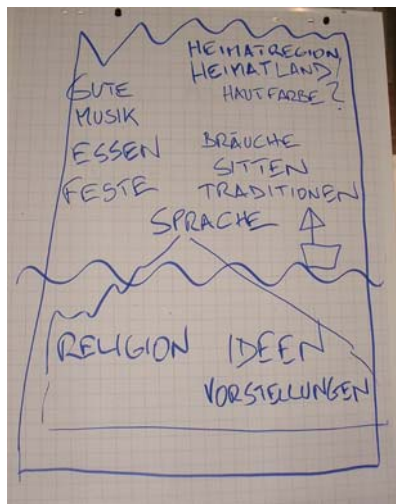 HEIMATREGION
HEIMATLAND
HAUTFARBE?
GUTE
MUSIK
ESSEN
FESTE
BRÄUCHE
SITTEN
TRADITIONEN
SPRACHE
RELIGION
IDEEN
VORSTELLUNGEN